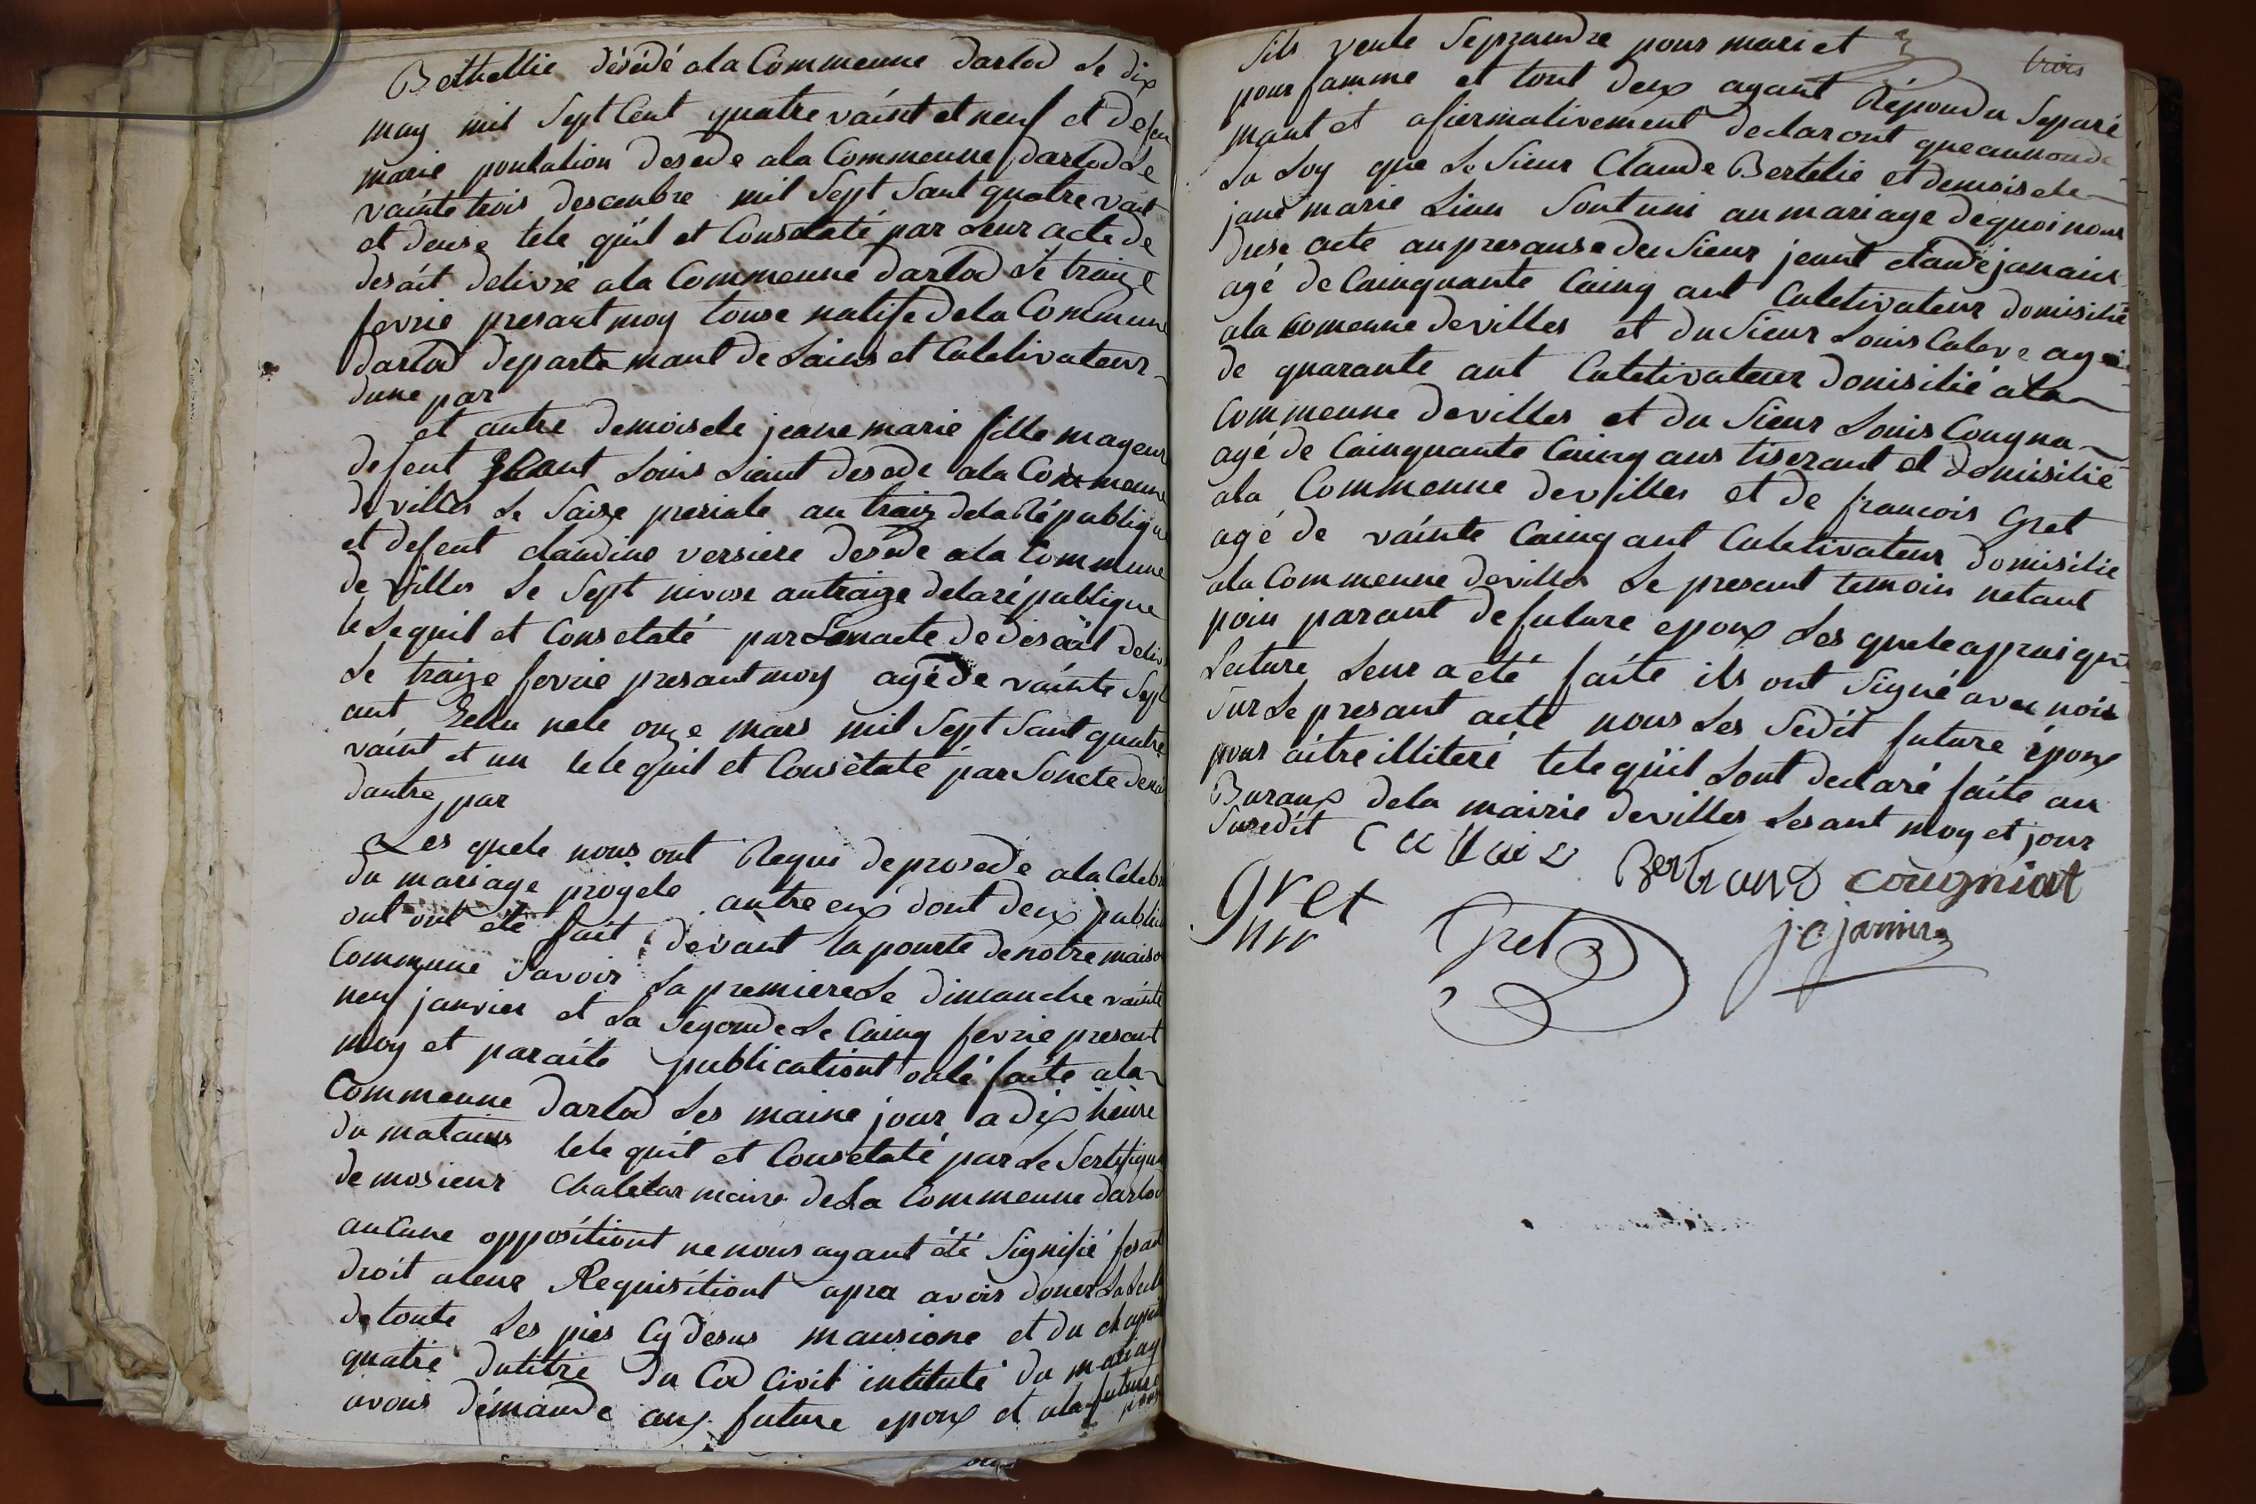 Bethellie désédé ala Commeune darlod Le dix
may mil Sept Cent quatre vaint et neuf et Defeu
marie pontation desede ala Commeune darlod Le
vainte trois descenbre mil Sept Sant quatre vaint
et deuse tele quil et Consetaté par Leur acte de
desáit delivré ala Commeune darlod Le traize
fevrie presant moy touse natife de la Commune
darlod departemant de Lains et Culetivateur
dune par
et autre demoisele jeane marie fille mageur
defeut Louis Liaut desede ala Commeune
de villes Le Saize preriale au traiz dela République
et defeut claudine versiere desede ala Commune
de villes Le Sept nivose autraize dela république
tele quil et Consetaté par Lenacte de desáit deliv
Le traize fevrie presant moy agé de vainte Sept
ant nele onze mars mil Sept Sant quatre
vaint et un tele quil et Consètaté par Soncte de
dautre par
Les quele nous ont Reque de prosede ala Celeb
du mariage progete autre eux dont deux public
ont ont été fait devant la pourte de notre maiso
Commune Savoir La premiere Le dimanche vainte
neuf janvier et La Segonde Le Cainq fevrie presant
moy et paraite publicationt oaté faite ala
Commeune darlod Les maine jour a dix heure
du matains tele quil et Consetaté par Le Sertifiqua
de mosieur Chaletar maire de La Commeune darlod
aucune oppositiont ne nous ayant été Signifié fesant
droit aleur Requisitiont apres avoir doner La Lectu
de toute Les pies Cy desus mansione et du chapit
quatre dutitre du Cod Civil intitulé du mariag
avons démande aux future epoux et ala future
pous
trois
Sils veule Seprandre pour mari et
pour famme et tout deux ayant Répondu Separé
mant et afiermativement declaront que aunonde
La Loy que Le Sieur Claude Bertelie et demoisele
jane marie Liau Sont uni au mariage de quoi nous
duse acte au presanse du Sieur jeant claude janain
agé de Cainquante Cainq ant Culetivateur domisilié
ala Comenne de villes et du Sieur Louis Caleve agé
de quarante ant Culetivateur Domisilié ala
Commeune de villes et du Sieur Louis Cougna
agé de Cainquante Cainq ans tiserant et domisilié
ala Commeune de villes et de francois Gret
agé de vainte Cainq ant Culetivateur domisilie
ala Commeune de villes Le presant temoin netant
poin parant de future epoux Les quele aprais que
Lecture Leur a été faite ils ont Signé avec nous
Sur Le presant acte nous Les Sedit future époux
pour aitre illiteré tele quil Sont declaré faite au
Buraux dela mairie de villes Lesant moy et jour
Susedit Bertrand cougniat
gret
Gret j.c janin